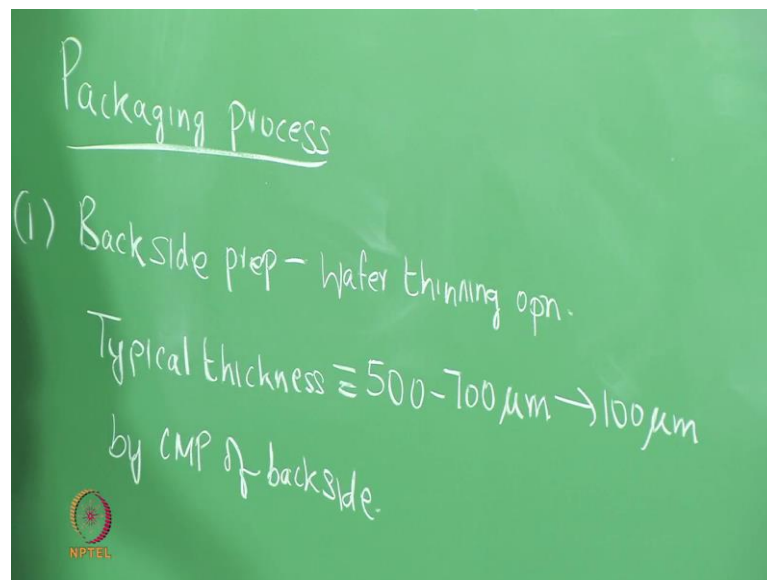 Packaging process
(1) Backside prep - Wafer thinning opn.
Typical thickness ≡ 500-700 μm → 100 μm
by CMP of backside.
NPTEL